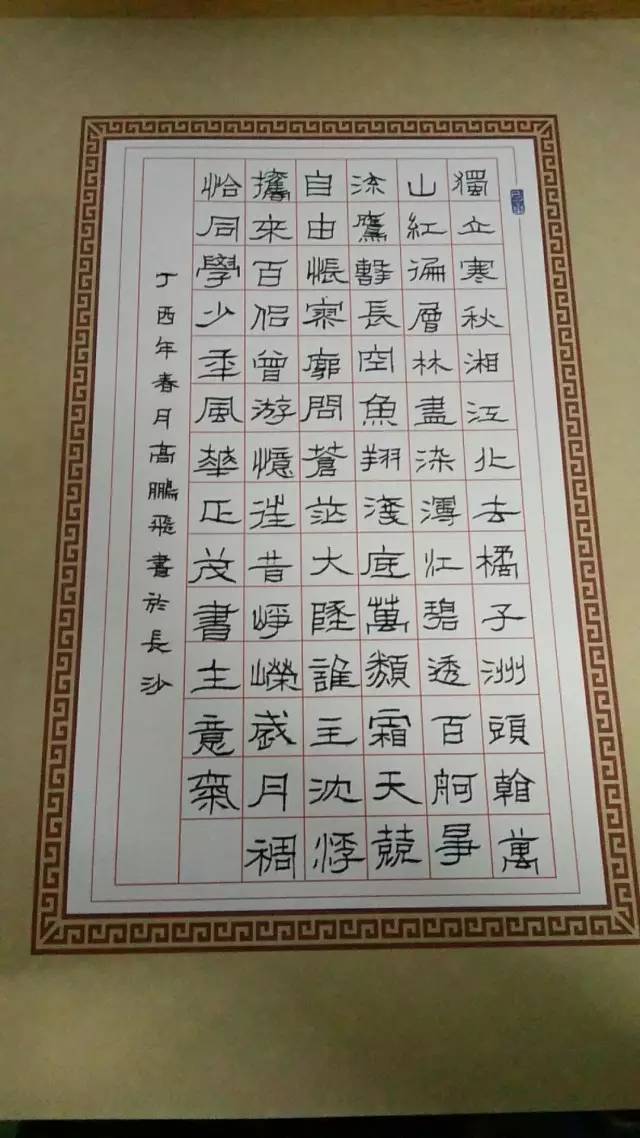 獨立寒秋湘江北去橘子洲頭看萬
山紅徧層林盡染漫江碧透百舸爭
流鷹擊長空魚翔淺底萬類霜天競
自由悵寥廓問蒼茫大地誰主沈浮
攜來百侶曾游憶往昔崢嶸歲月稠
恰同學少年風華正茂書生意氣
丁酉年春月高鵬飛書於長沙